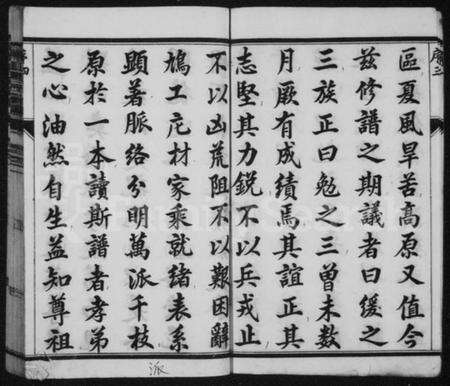 序三
區夏風旱苦高原又值今
茲修譜之期議者曰緩之
三族正曰勉之三曾未數
月厥有成績焉其誼正其
志堅其力銳不以兵戎止
不以凶荒阻不以艱困辭
鳩工庀材家乘就緒表系
顯著脈絡分明萬派千枝
原於一本讀斯譜者孝弟
之心油然自生益知尊祖
序四
派